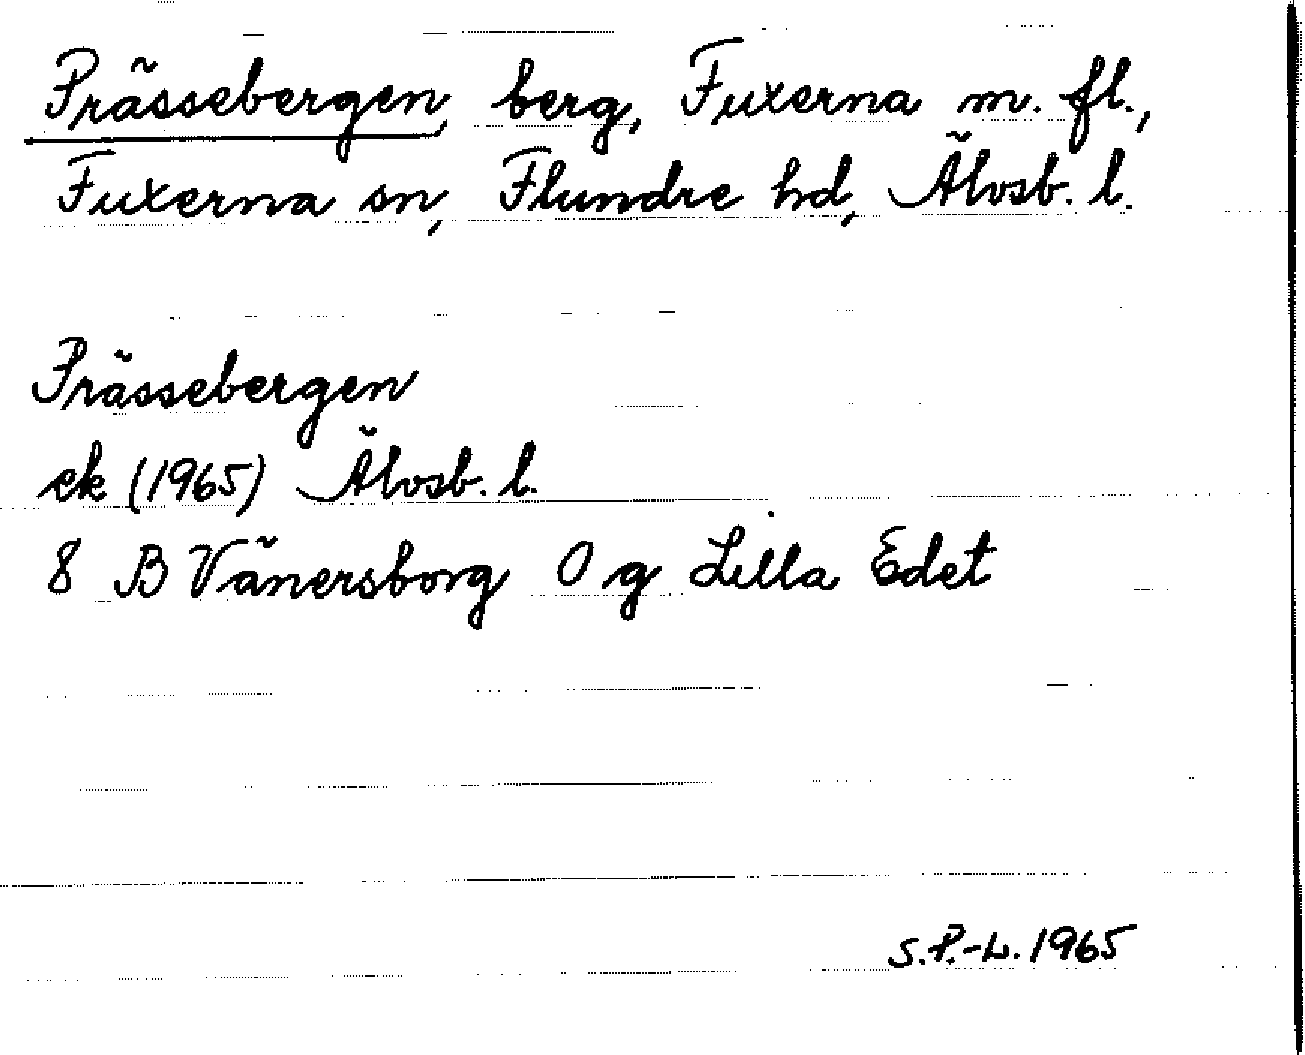 Prässebergen, berg, Fuxerna m. fl.,
Fuxerna sn, Flundre hd, Älvsb. l.
Prässebergen
ek (1965) Älvsb. l.
8 B Vänersborg 0 g Lilla Edet
S.P.-L. 1965